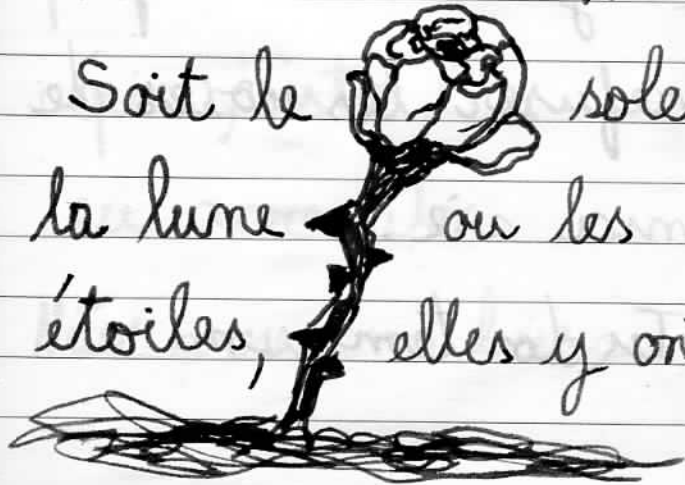 Soit le sole
la lune ou les
étoiles, elles y on